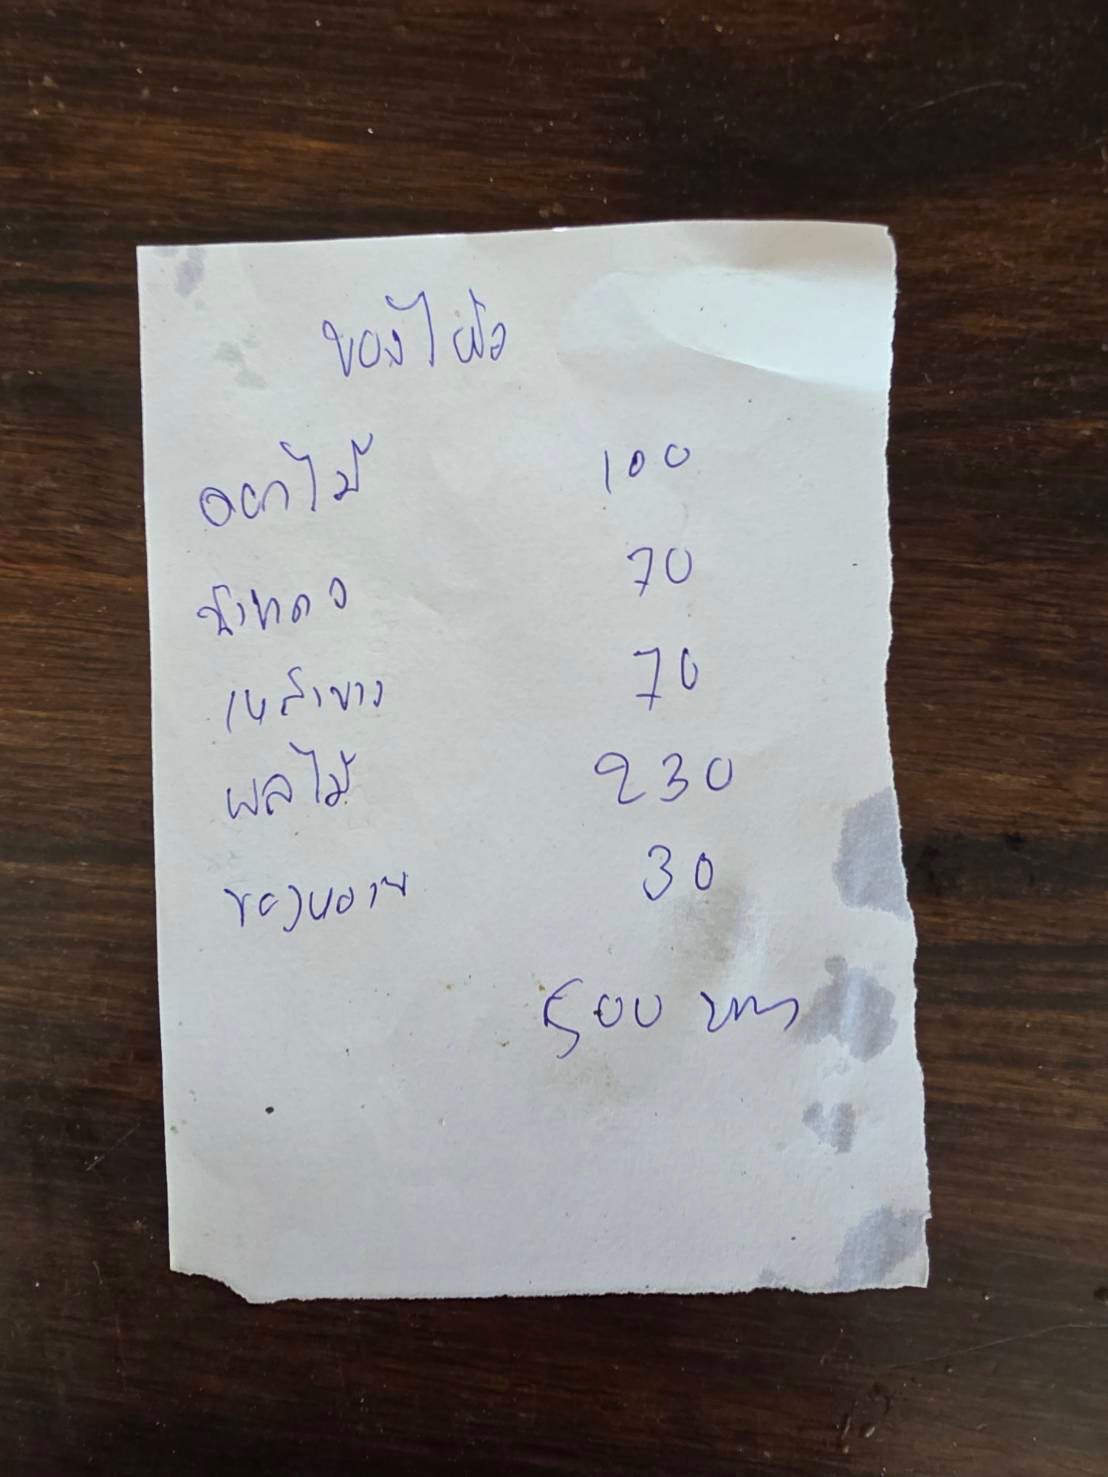 ของไหว้
ดอกไม้ 100
70
เหล้าขาว 70
ผลไม้ 230
ของหวาน 30
500 บาท